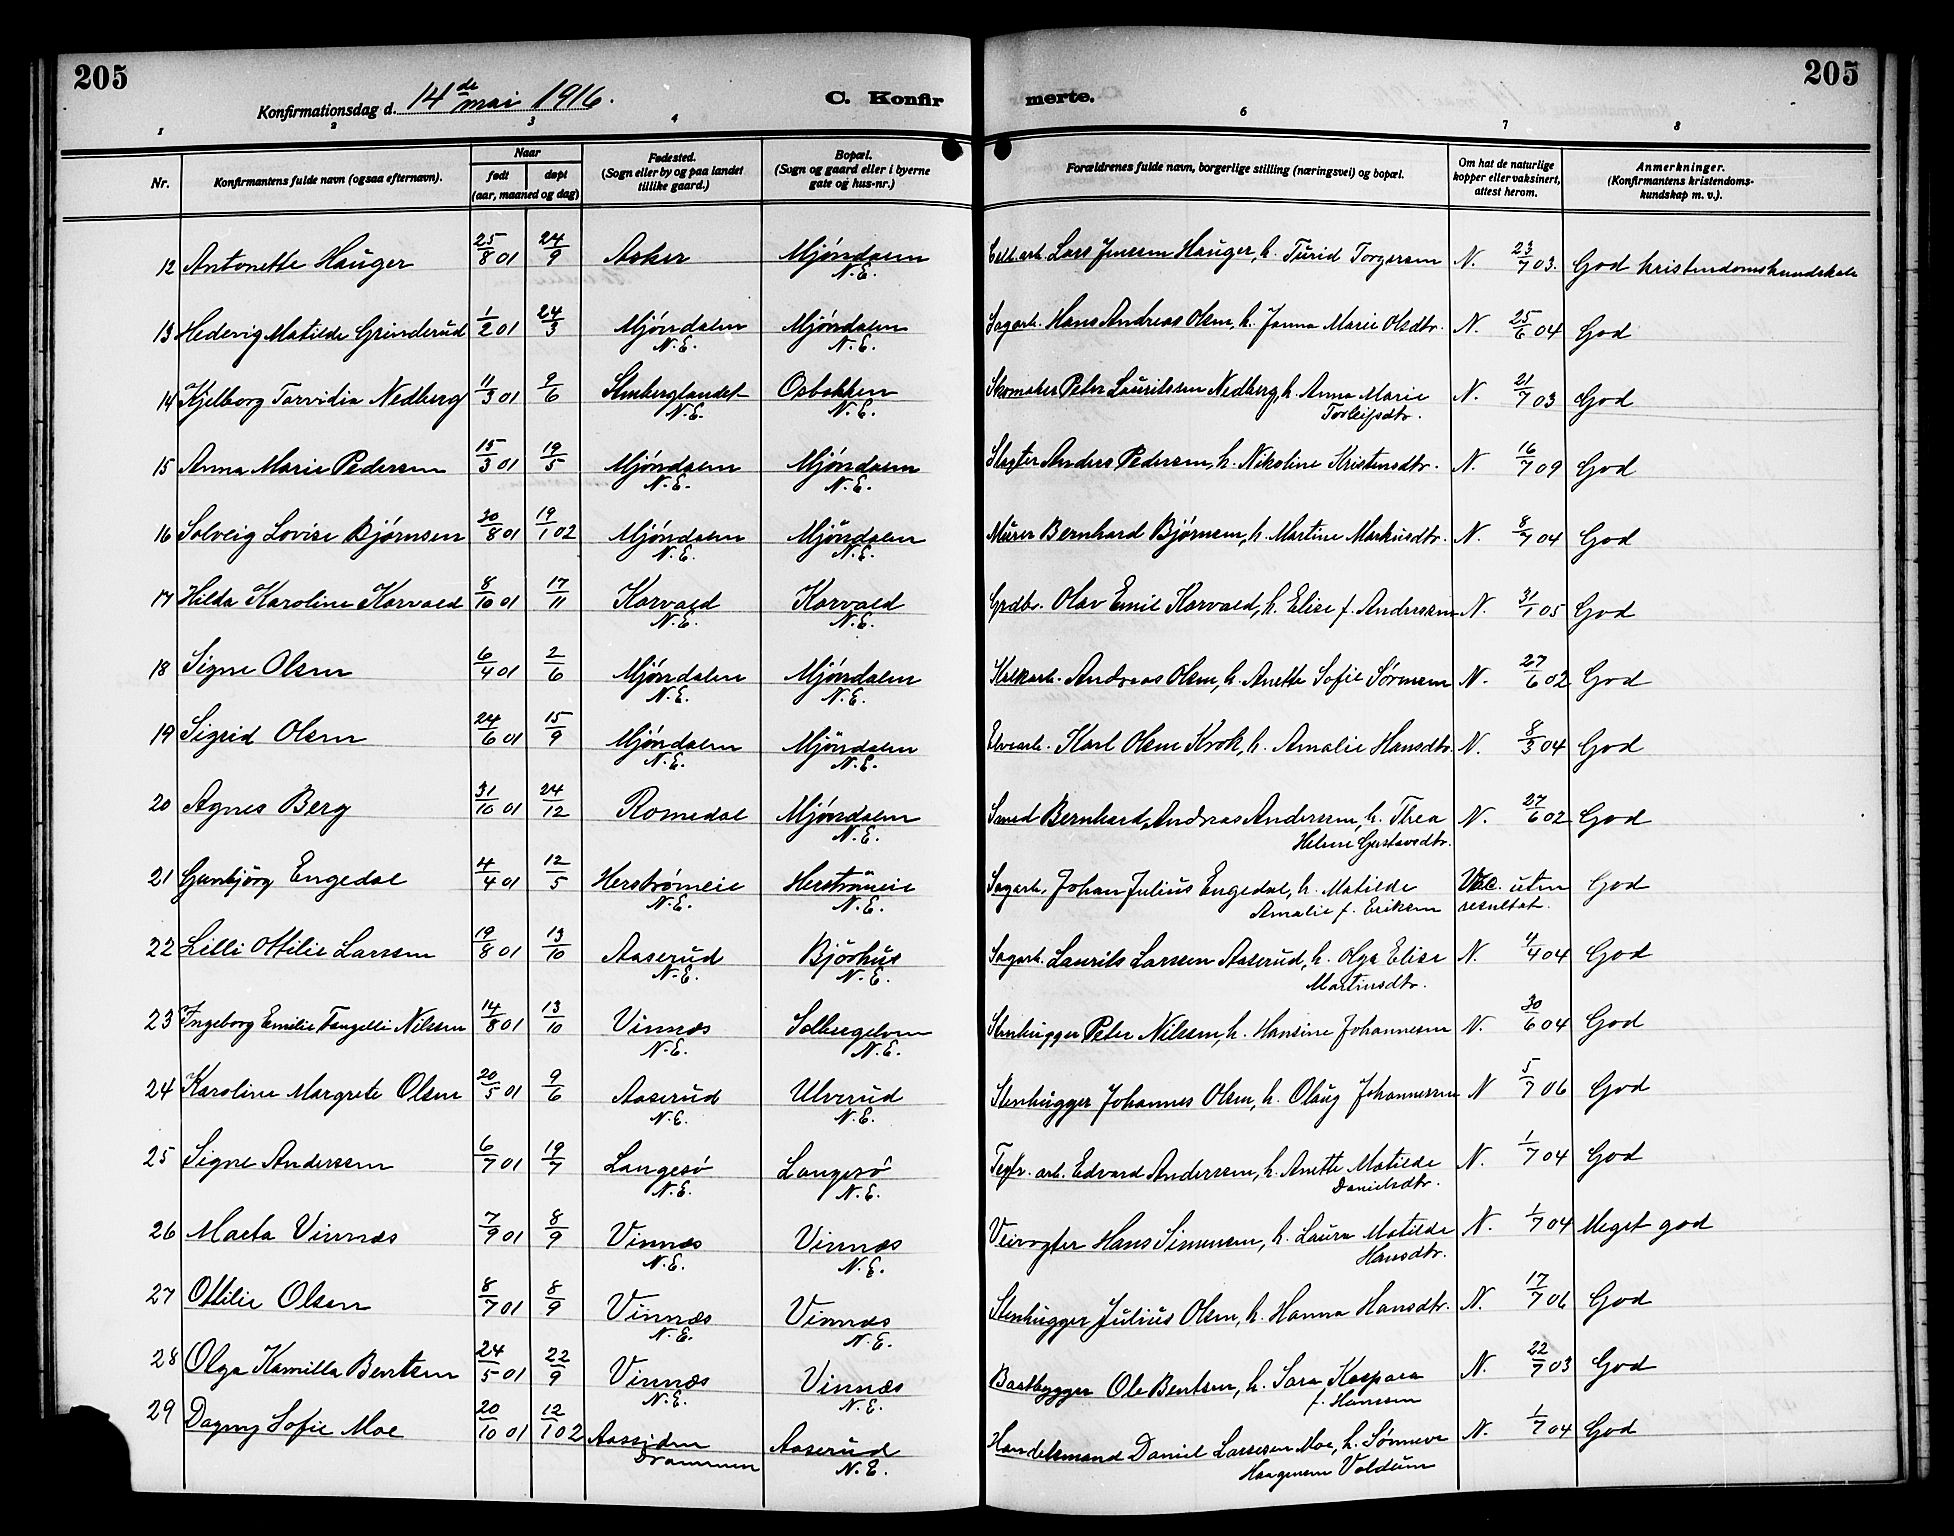 205
Konfirmationsdag d. 14de mai 1916.
C. Konfirmerte.
205
1 2 3 4 6 7 8
Nr.
Konfirmantens fulde navn (ogsaa efternavn).
Naar
født døpt
(aar, maaned og dag)
Fødested.
(Sogn eller by og paa landet
tillike gaard.)
Bopæl.
(Sogn og gaard eller i byerne
gate og hus-nr.)
Forældrenes fulde navn, borgerlige stilling (næringsvei) og bopæl.
Om hat de naturlige
kopper eller vaksinert,
attest herom.
Anmerkninger.
(Konfirmantens kristendoms-
kundskap m. v.).
12 Antonette Hauger 25/8 01 24/9 Asker Mjøndalen N.E. Cell.arb. Lars Jensen Hauger, h. Turid Torgersen N. 23/7 03. God kristendomskundskab
13 Hedevig Matilde Grinderud 1/2 01 24/3 Mjøndalen N.E. Mjøndalen N.E. Sagarb. Hans Andreas Olsen, h. Janna Marie Olsdtr. N. 25/6 04 God
14 Kjelborg Torvidia Nedberg 11/3 01 9/6 Stenberglandet N.E. Osbakken N.E. Skomaker Peter Lauritssen Nedberg, h. Anna Marie N. 21/7 03 God
Torleifsdtr.
15 Anna Marie Pedersen 15/3 01 19/5 Mjøndalen N.E. Mjøndalen N.E. Slagter Anders Pedersen, h. Nikoline Kristensdtr. N. 16/7 09 God
16 Solveig Lovise Bjørnsen 30/8 01 19/1 02 Mjøndalen N.E. Mjøndalen N.E. Murer Bernhard Bjørnsen, h. Martine Markusdtr. N. 8/7 04 God
17 Hilda Karoline Korvald 8/10 01 17/11 Korvald N.E. Korvald N.E. Grdbr. Olav Emil Korvald, h. Elise f. Anderssen N. 31/1 05 God
18 Signe Olsen 6/4 01 2/6 Mjøndalen N.E. Mjøndalen N.E. Kalkarb. Andreas Olsen, h. Anette Sofie Sørensen N. 27/6 02 God
19 Sigrid Olsen 24/6 01 15/9 Mjøndalen N.E. Mjøndalen N.E. Elvearb. Karl Olsen Krok, h. Amalie Hansdtr. N. 8/3 04 God
20 Agnes Berg 31/10 01 24/12 Romedal Mjøndalen N.E. Smed Bernhard Andreas Andersen, h. Thea N. 27/6 02 God
Helene Gustavsdtr.
21 Gunbjörg Engedal 4/4 01 12/5 Herstrømeie N.E. Herstrømeie N.E. Sagarb. Johan Julius Engedal, h. Matilde Vac. uten God
Amalie f. Eriksen resultat.
22 Lilli Ottilie Larssen 19/8 01 13/10 Aaserud N.E. Bjørhus N.E. Sagarb. Laurits Larssen Aaserud, h. Olga Elise N. 4/4 04 God
Martinsdtr.
23 Ingeborg Emilie Tangelli Nilssen 14/8 01 13/10 Vinnæs N.E. Solbergelven N.E. Stenhugger Peter Nilssen, h. Hansine Johannesen N. 30/6 04 God
24 Karoline Margrete Olsen 20/5 01 9/6 Aaserud N.E. Ulverud N.E. Stenhugger Johannes Olsen, h. Olaug Johannessen N 5/7 06 God
25 Signe Anderssen 6/7 01 19/7 Langesø N.E. Langesø N.E. Teglv. arb. Edvard Anderssen, h. Anette Matilde N. 1/7 04 God
Danielsdtr.
26 Marta Vinnæs 7/9 01 8/9 Vinnæs N.E. Vinnæs N.E. Veivogter Hans Simensen, h. Laura Matilde N. 1/7 04 Meget god
Hansdtr.
27 Ottilie Olsen 8/7 01 8/9 Vinnæs N.E. Vinnæs N.E. Stenhugger Julius Olsen, h. Hanna Hansdtr. N. 17/7 06 God
28 Olga Kamilla Bentsen 24/5 01 22/9 Vinnæs N.E. Vinnæs N.E. Baatbygger Ole Bentsen, h. Sara Kaspara N. 22/7 03 God
f. Hanssen
29 Dagny Sofie Moe 20/10 01 12/1 02 Aassiden Drammen Aaserud N.E. Handelsmand Daniel Larssen Moe, h. Sønneve N. 1/7 04 God
Haagensen Voldum